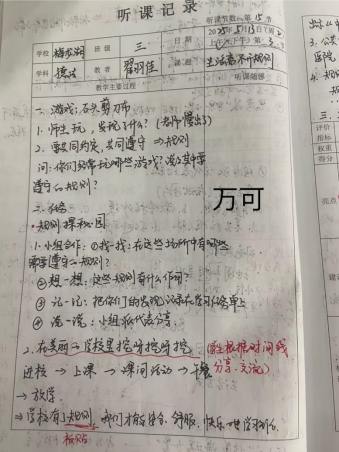 听课记录
听课节数: 第 15 节
学校 梅龙湖 班级 三 日期 2025年5月13日(周二)
上(下)午 第 3 节
学科 德法 教者 翟羽佳 课题 生活离不开规则
教学主要过程 听课随感
一、游戏:石头剪刀布
1. 师生玩,发现了什么?(老师慢出了)
2. 要共同约定,共同遵守 → 规则
问:你们日常玩哪些游戏?说说其中要
遵守的规则?
万可
二、任务
·规则探秘园
1. 小组合作:①找一找:在这些场所中有哪些
需要遵守的规则?
②想一想:这些规则有什么作用?
③记一记:把你们的发现记录在学习任务单上
④说一说:小组派代表分享
2. 在美丽的学校里挖呀挖呀挖 (学生根据时间线
进校 → 上课 → 课间活动 → 午餐 分享、交流)
→ 放学
⇒ 学校有了规则,我们才能安全、舒服、快乐地学习生活
板贴
三
公共
医院
4. 规则
评价
指标
权重
得分
亮点
建议